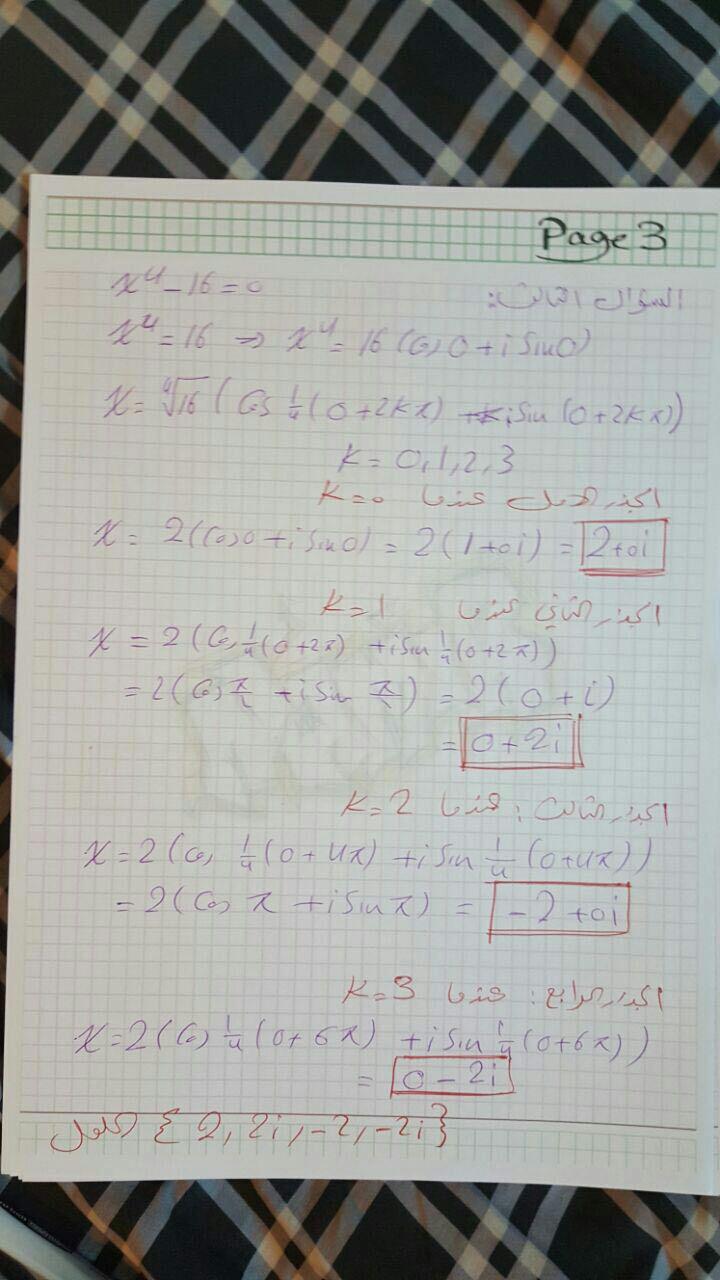 Page 3
السؤال الثالث:
x⁴ - 16 = 0
x⁴ = 16 ⇒ x⁴ = 16 (Cos 0 + i Sin 0)
x = ⁴√16 ( Cos 1/4 (0 + 2kπ) + i Sin (0 + 2kπ))
k = 0, 1, 2, 3
الجذر الاول عندما k = 0
x = 2(Cos 0 + i Sin 0) = 2(1 + 0i) = 2+0i
الجذر الثاني عندما k = 1
x = 2 (Cos 1/4 (0 + 2π) + i Sin 1/4 (0 + 2π))
= 2(Cos π/2 + i Sin π/2) = 2(0 + i)
= 0 + 2i
الجذر الثالث: عندما k = 2
x = 2 (Cos 1/4 (0 + 4π) + i Sin 1/4 (0 + 4π))
= 2(Cos π + i Sin π) = -2 + 0i
الجذر الرابع: عندما k = 3
x = 2 (Cos 1/4 (0 + 6π) + i Sin 1/4 (0 + 6π))
= 0 - 2i
الحلول {2, 2i, -2, -2i}